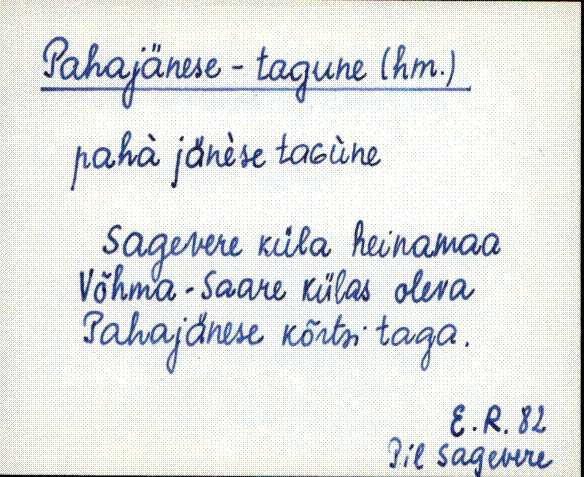 Pahajänese-tagune (hm.)
pahà jänèse taGùne
Sagevere küla heinamaa
Võhma-Saare külas oleva
Pahajänese kõrtsi taga.
E.R. 82
Pil Sagevere